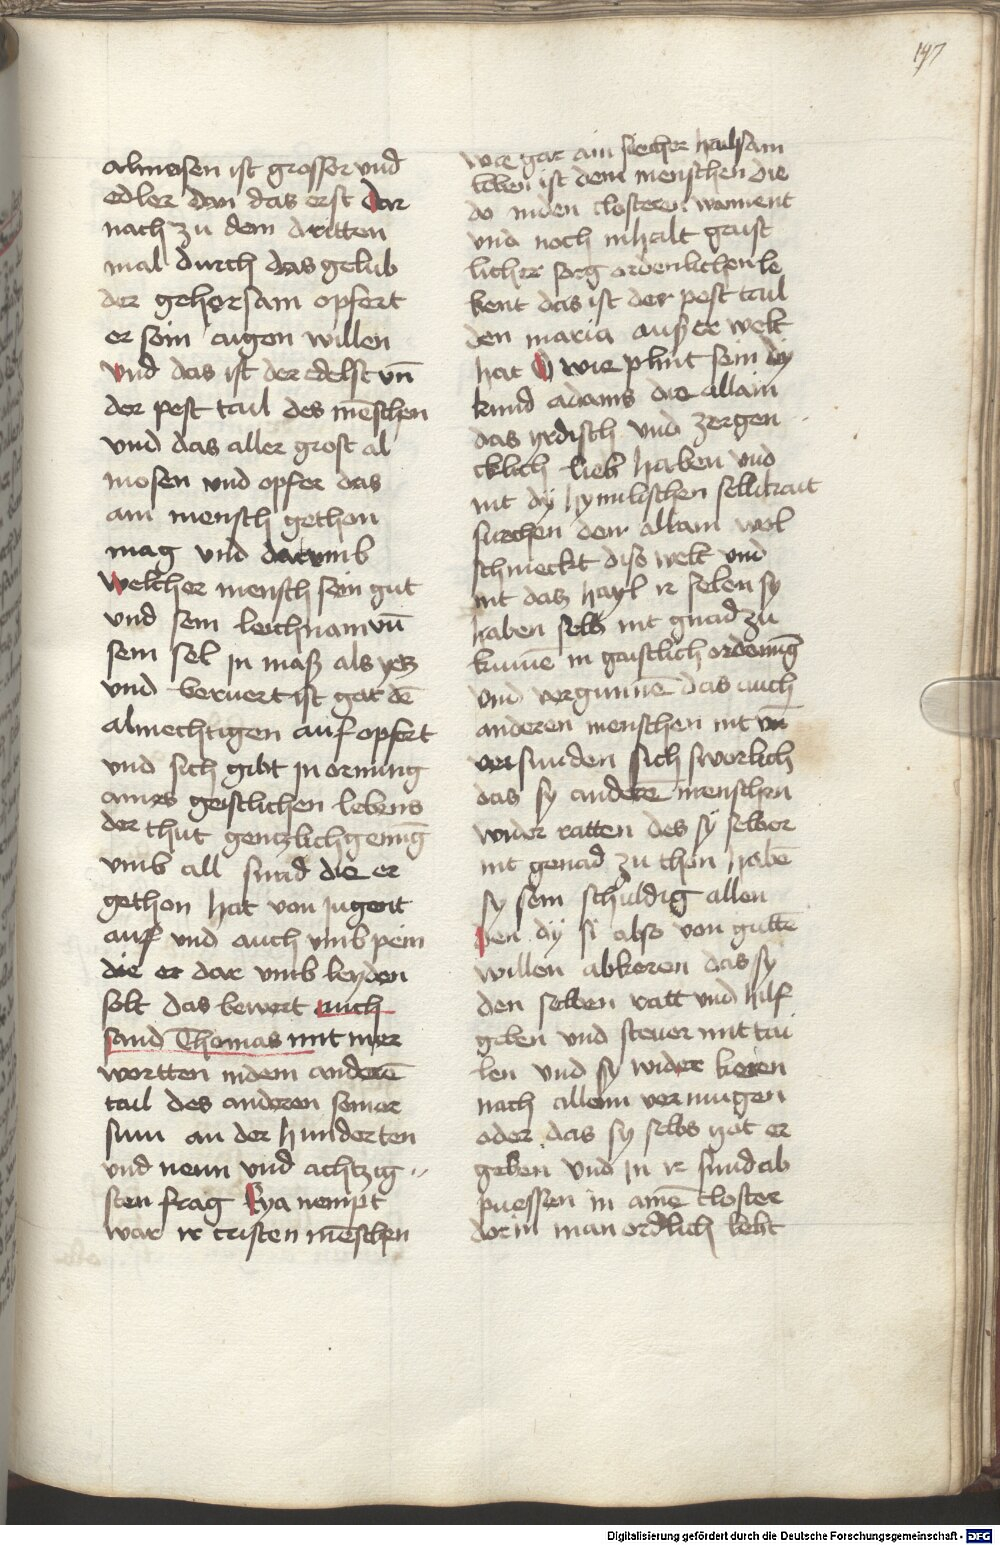 147
almosen ist grosser vnd
edler dan das erst Dar
nach zu dem dritten
mal durch das gelub
der gehorsam opfert
er sein aigen willen
vnd das ist der edelst vn̄
der pest tail des mēschen
vnd das aller grost al
mosen vnd opfer das
ain mensch gethon
mag vnd darumb
welcher mensch sein gut
vnd sein leichnam vn̄
sein sel jn maß als yetz
vnd beruert ist gar dē
almechtigen auf opfert
vnd sich gibt jn ornung
aines geistlichen lebens
der thut gentzlich genūg
vmb all sund die er
gethon hat von jugent
auf vnd auch vmb pein
die er dar vmb leyden
solt das bewert auch
sand Thomas mit mer
wortten in dem anderē
tail des anderen seiner
sum an der hunderten
vnd neun vnd achtzig
sten frag Eya nempt
war ir cristen mēschen
wie gar ain sicher hailsam
leben ist dem menschen die
do in den closteren wonnent
vnd noch inhalt geist
licher sorg ordenlichen le
bent das ist der pest tail
den maria auß der welt
hat O wie plint sein dy
kind adams die allain
das yrdisch vnd zergen
cklich lieb haben vnd
nit dÿ hymilischen sellikait
suechen den allain wol
schmeckt diso welt vnd
nit das hayl ir selen sy
haben selbs nit gnad zu
kumē in gaistlich ordenūg
vnd vergunnē das auch
anderen menschen nit vn̄
versunden sich swerlich
das sy anderē menschen
wider ratten des sÿ selber
nit genad zu thon habē
sy sein schuldig allen
den dÿ si also von guttē
willen abkeren das sy
den selben ratt vnd hilf
geben vnd steuer mit tai
len vnd sy wider keren
nach allem vermugen
oder das sy selbs hat er
geben vnd jn ir sund ab
puessen in ainē closter
dorin man ordlich lebt
Digitalisierung gefördert durch die Deutsche Forschungsgemeinschaft - DFG